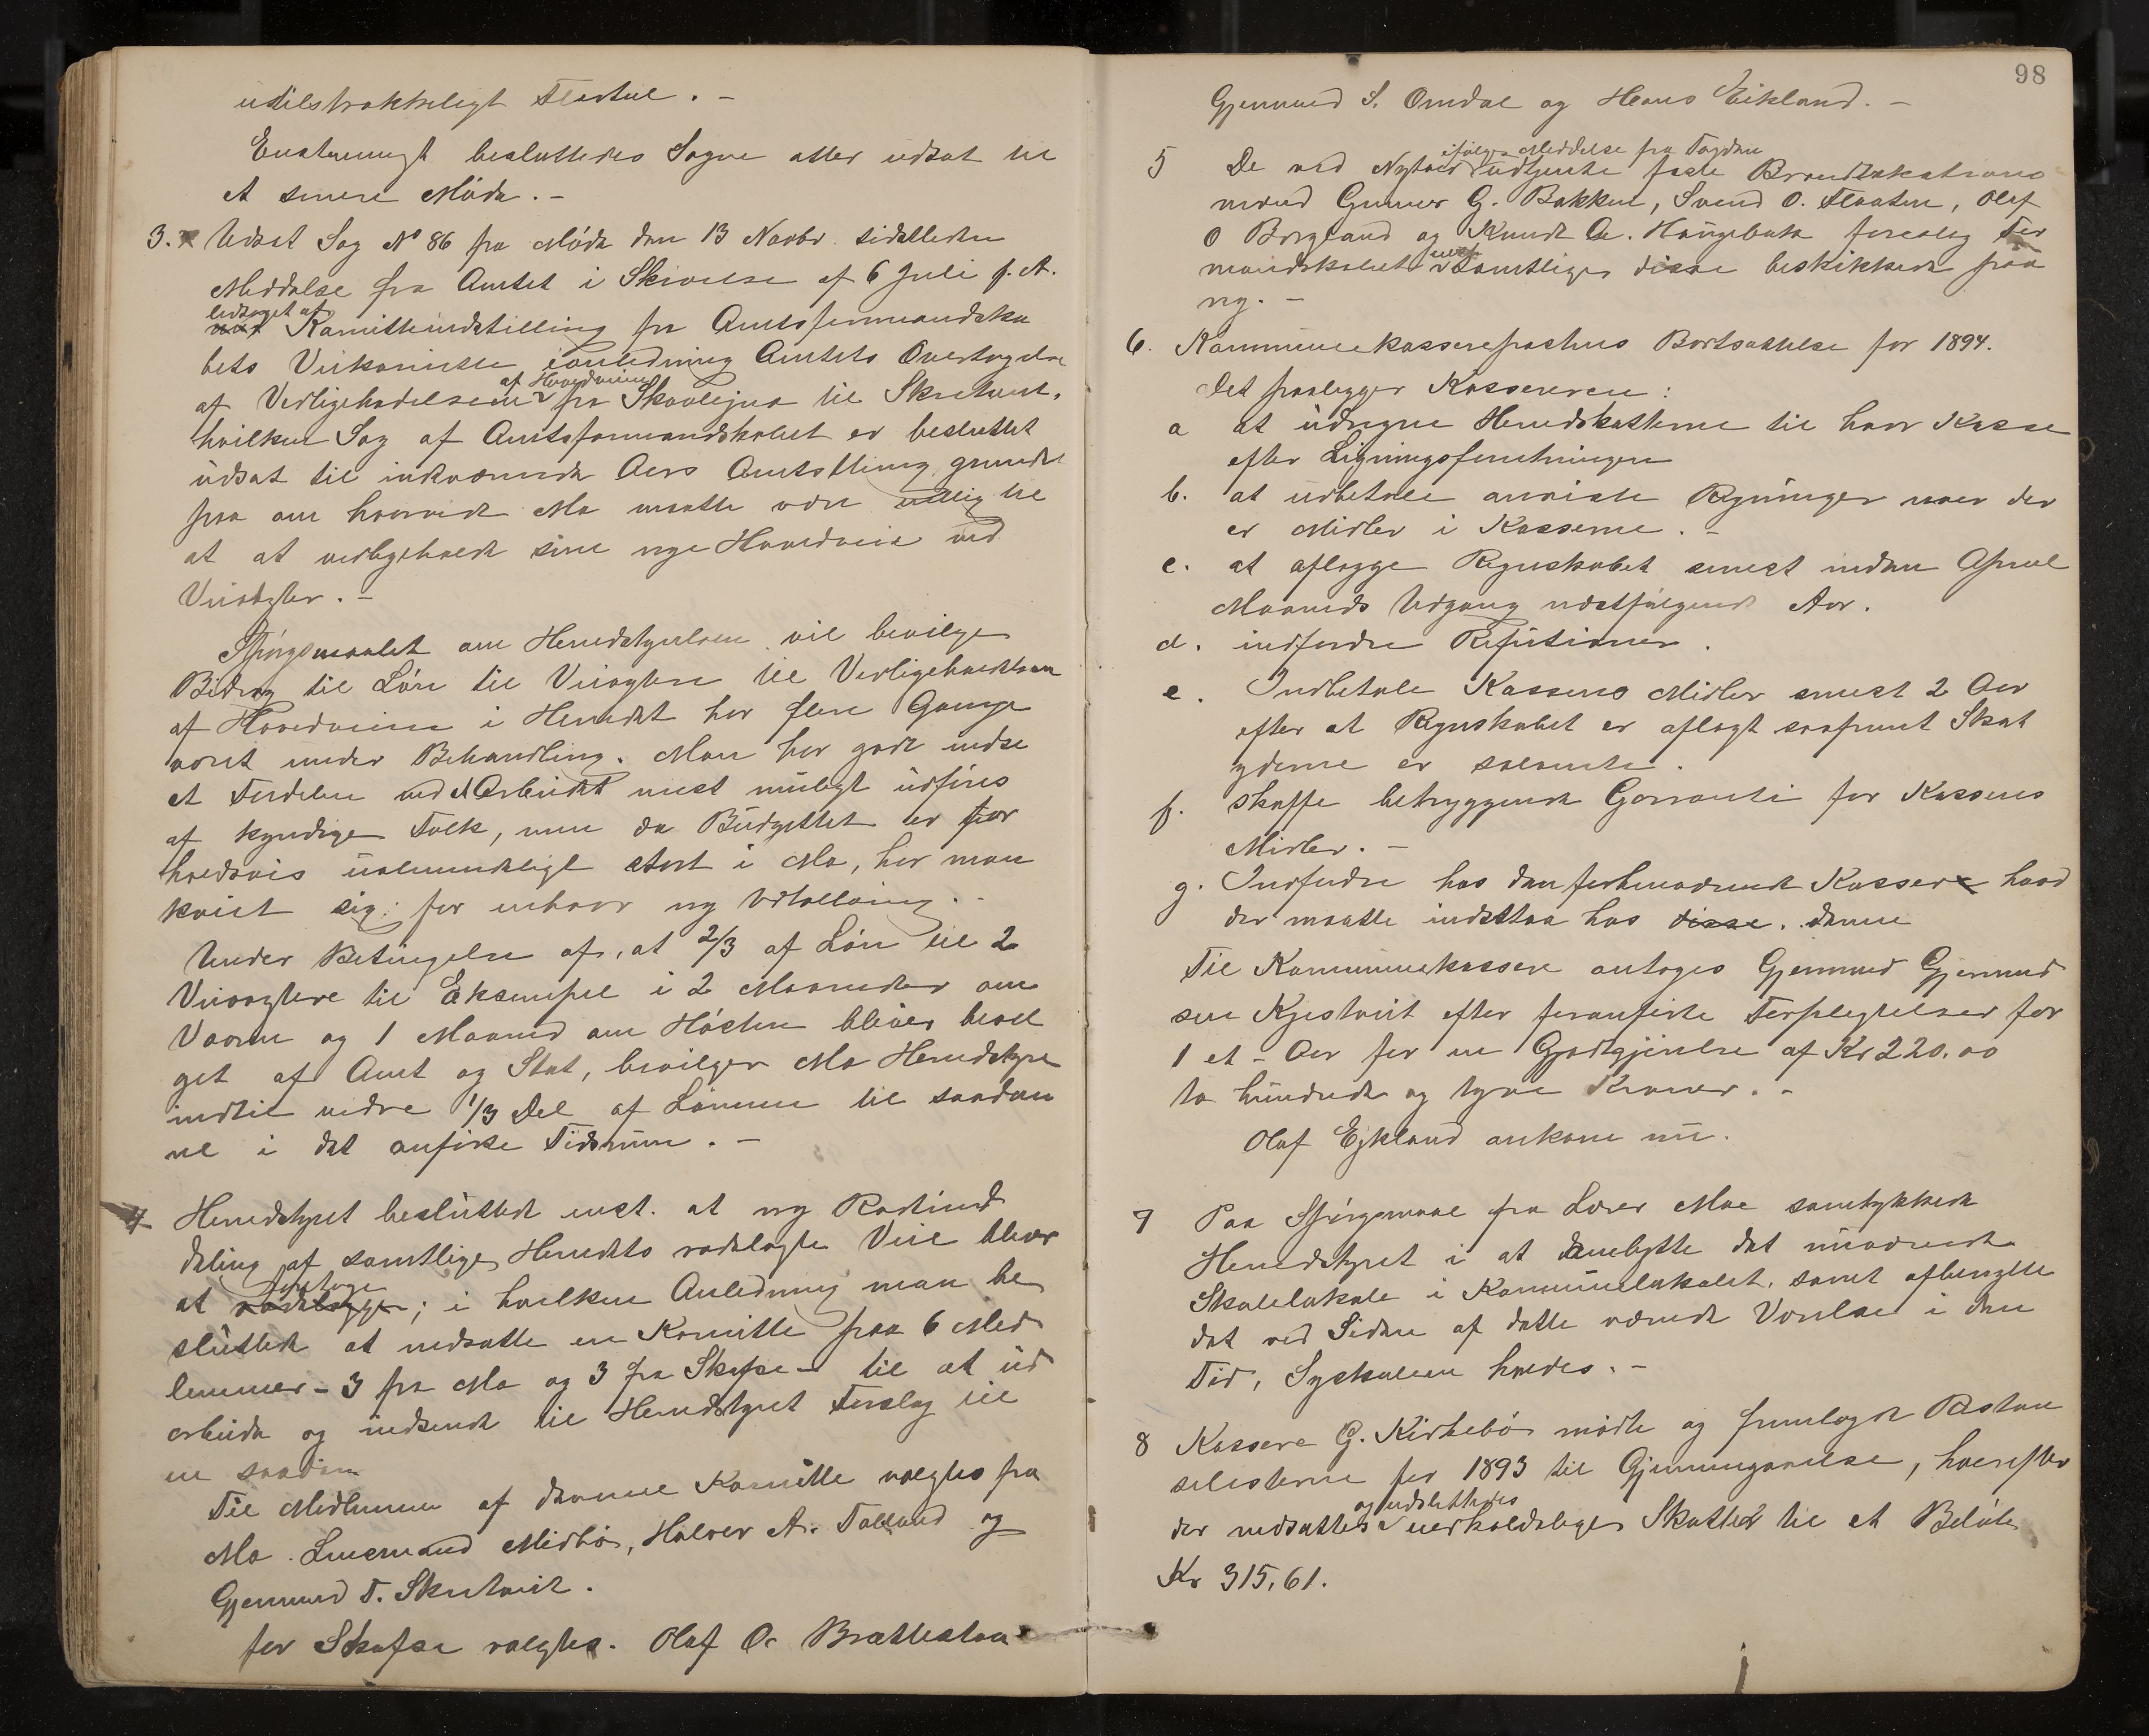 utilstrækkeligt Flertal. –
Enstemmigt besluttedes Sagen atter udsat til
et senere Møde. –
3. Udsat Sag No 86 fra Møde den 13 Novbr. sidstleden
Meddelse fra Amtet i Skrivelse af 6 Juli f. A.
ledsaget af
Komiteindstilling fra Amtsformandska
bets Veikomite i anledning Amtets Overtagelse
af Hovedveien
af Vedligeholdelsen fra Skovlejna til Skretveit,
hvilken Sag af Amtsformandskabet er besluttet
udsat til inkværende Aars Amtsthing grundet
paa om hvorvidt Mo maatte være villig til
at at vedligeholde sine nye Hovedveie ved
Veivogter. –
Spørgsmaalet om Herredstyrelsen vil bevilge
Bidrag til Løn til Veivogtere til Vedligeholdelsen
af Hovedveiene i Herredet har flere Gange
været under Behandling. Man har godt indse
et Fordelen ved Arbeidet mest muligt udføres
af kyndige Folk, men da Budgettet er for
holdsvis ualmindeligt stort i Mo, har man
kviet sig for enhver ny Udtælling. –
Under Betingelse af, at 2/3 af Løn til 2
Veivogtere til Eksempel i 2 Maaneder om
Vaaren og 1 Maaned om Høsten bliver bevil
get af Amt og Stat, bevilger Mo Herredstyre
indtil videre 1/3 Del af Lønnen til saadan
ne i det anførte Tidsrum. –
4 Herredstyret besluttede enst. at ny Rodeind
deling af samtlige Herredets rodelagte Veie bliver
foretage
at rodelægge; i hvilken Anledning man be
sluttede at nedsætte en Komitte paa 6 Med
lemmer – 3 fra Mo og 3 fra Skafse – til at ud
arbeide og indsende til Herredstyret Forslag til
en saadan
Til Medlemmer af denne Komitte valgtes fra
Mo. Lensmand Midbø, Halvor A. Talland og
Gjermund T. Skretveit.
for Skafse valgtes. Olaf O. Brattestaa
98
Gjermund S. Omdal og Hans Eikland. –
ifølge Meddelse fra Fogden
5 De ved Nytaar udtjente faste Brandtakstions
mænd Gunner G. Bakken, Svend O. Flaaten, Olaf
O Borgland og Knudt A. Haugebak foreslog For
enst.
mandskabet samtlige disse beskikkede paa
ny. –
6. Kommunekassereposthus Bortsættelse for 1894.
Det paalegger Kassereren:
a at udregne Herredskatterne til hver Kasse
efter Ligningsforretningen
b. at udbetale anviste Regninger naar der
er Midler i Kasserne. –
c. at aflægge Regnskabet senest inden April
Maaneds Udgang næstfølgende Aar.
d. indfordre Refusioner.
e. Indbetale Kassens Midler senest 2 Aar
efter at Regnskabet er aflagt saafremt Skat
yderne er solvente.
f. skaffe betryggende Garranti for Kassens
Midler. –
g. Indfordre hos den forhenværende Kassere hvad
der maatte indestaa hos disse. denne
Til Kommunekassere antoges Gjermund Gjermund
sen Kjestveit efter foranførte Forplegtelser for
1 et – Aar for en Godtgjørelse af Kr 220.00
to hundrede og tyve Kroner. –
Olaf Ejkland ankom nu.
7 Paa Spørgsmaal fra Lærer Moe samtykkede
Herredstyret i at benytte det nuværende
Skolelokale i Kommunelokalet, samt afbenytte
det ved Siden af dette værende Værelse i den
Tid, Syskolen holdes. –
8 Kassere G. Kirkebø mødte og fremlagde Restan
selisterne for 1893 til Gjennemgaaelse, hvorefter
og udslettedes
der nedsattes uerholdelige Skatter til et Beløb
Kr 315,61.